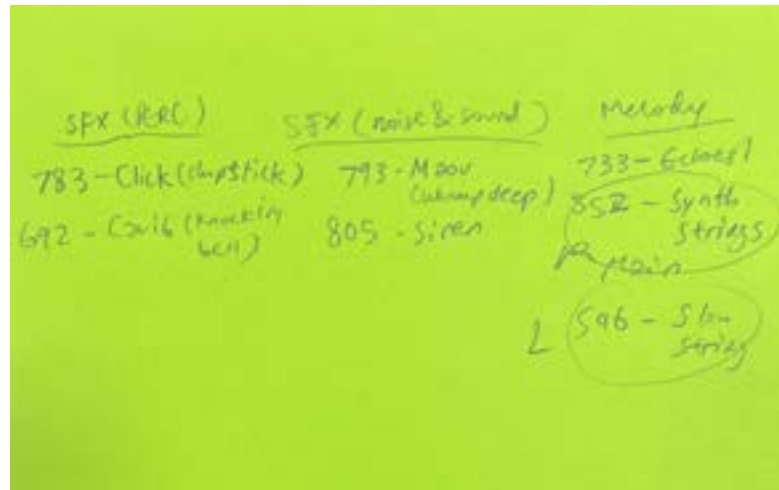 SFX (PERC)
783 - Click (chopstick)
692 - (knockin
bell)
SFX (noise & sound)
793 -
deep)
805 - Siren
Melody
733 -
352 - Synth
Strings
Main
L 596 - Slow
String